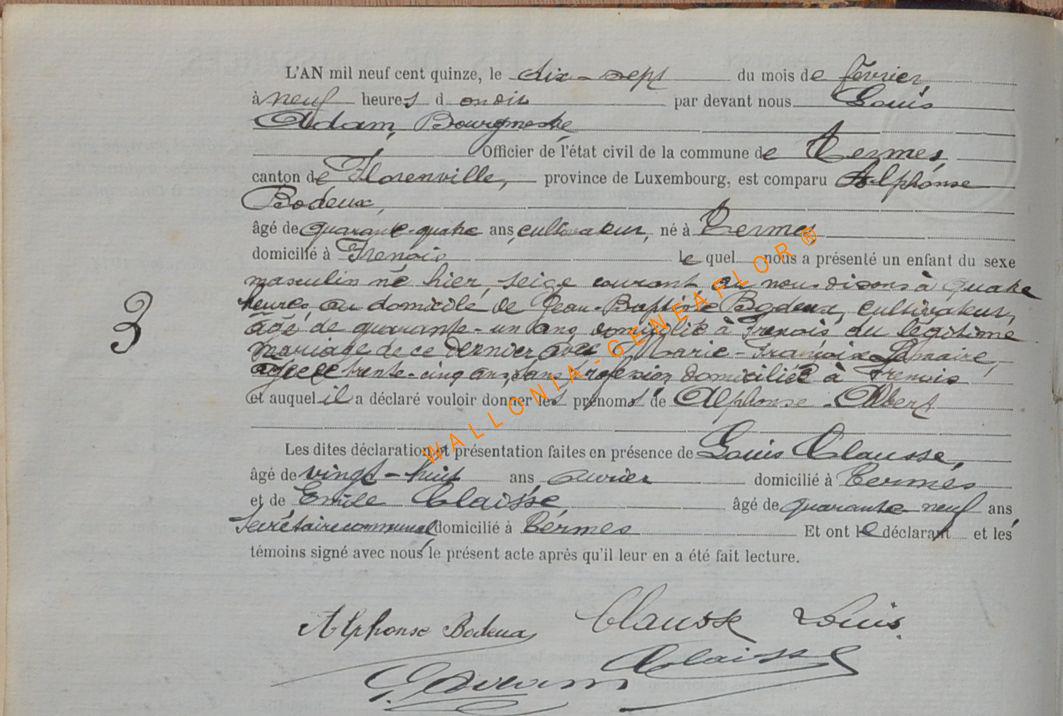 L'AN mil neuf cent quinze, le dix-sept du mois de février
à neuf heures d du soir par devant nous Louis
Adam, Bourgmestre
Officier de l'état civil de la commune de Termes,
canton de Florenville, province de Luxembourg, est comparu Alphonse
Bodeux,
âgé de quarante-quatre ans, cultivateur, né à Termes
domicilié à Frenois le quel nous a présenté un enfant du sexe
masculin né hier, seize courant à quatre
3
heures, au domicile de Jean-Baptiste Bodeux, cultivateur,
âgé de quarante-un ans, domicilié à Frenois du légitime
mariage de ce dernier avec Marie-Françoise Lemaire,
âgée de trente-cinq ans, sans profession domiciliée à Frenois
et auquel il a déclaré vouloir donner les prénoms de Alphonse-Albert
WALLONIA-GENEARLOR®
Les dites déclaration et présentation faites en présence de Louis Clausse,
âgé de vingt-huit ans ouvrier domicilié à Termes
et de Emile Claisse âgé de quarante neuf ans
Secrétaire communal domicilié à Termes Et ont le déclarant et les
témoins signé avec nous le présent acte après qu'il leur en a été fait lecture.
Alphonse Bodeux Clausse Louis
Claisse
Adam